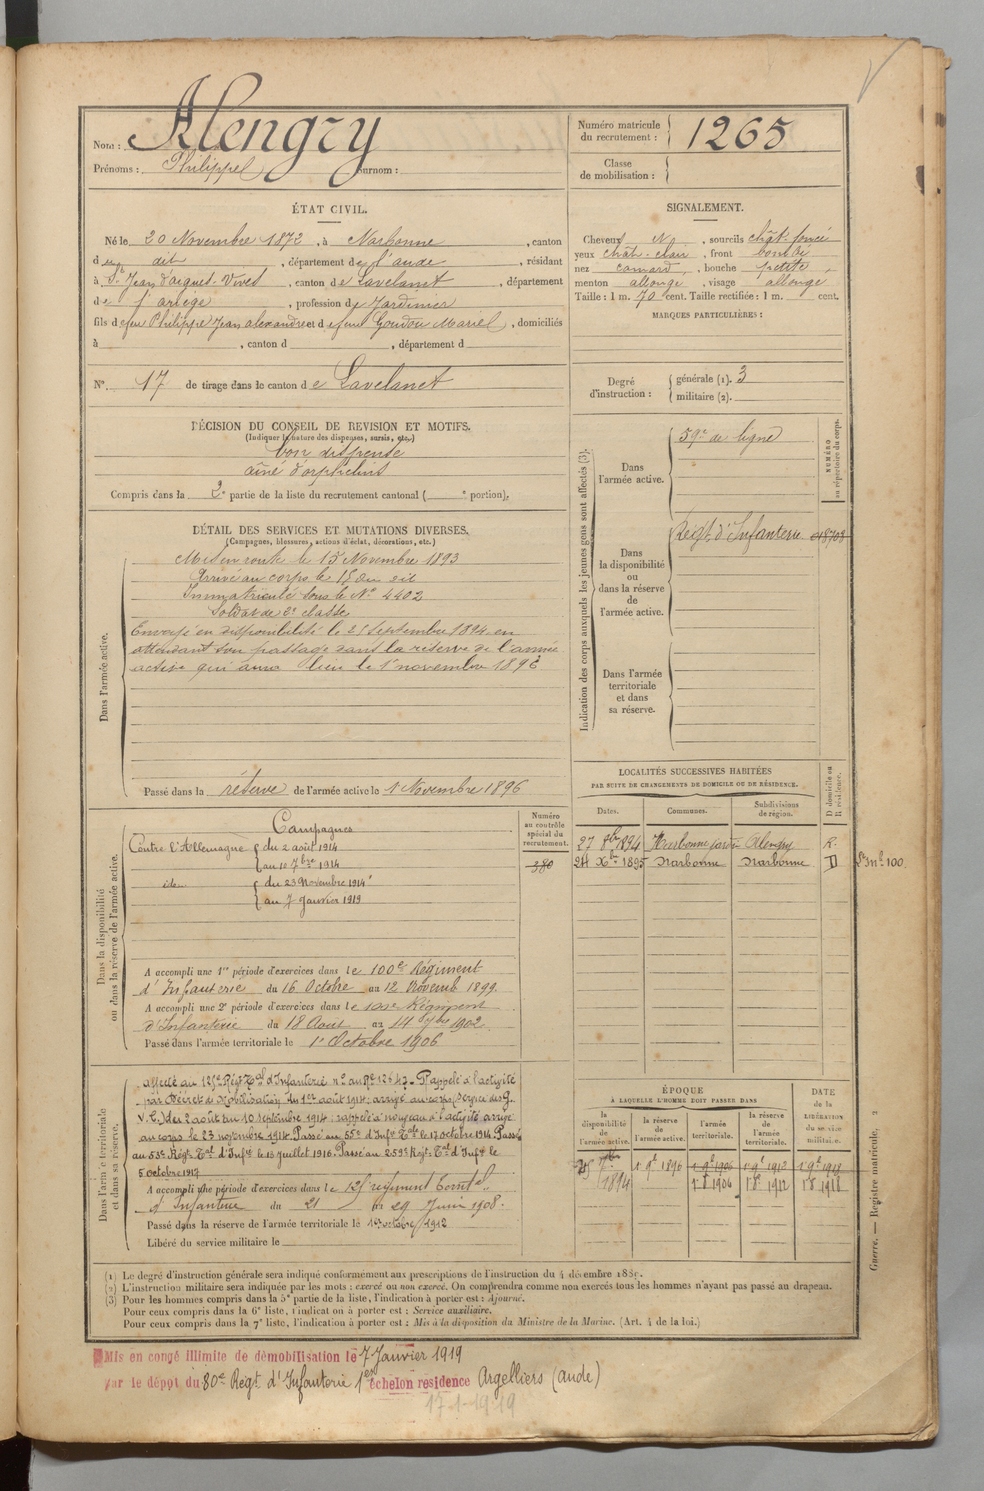 Nom : Alengry
Prénoms : Philippe Surnom :
Numéro matricule du recrutement : 1265
Classe de mobilisation :
ÉTAT CIVIL.
Né le 20 Novembre 1872, à Narbonne, canton
du dit, département de l'aude, résidant
à St Jean d'aigues-Vives, canton de Lavelanet, département
de l'ariège, profession de Jardinier
fils de feu Philippe Jean alexandre et de feue Goudou Marie, domiciliés
à , canton d , département d
N° 17 de tirage dans le canton de Lavelanet
SIGNALEMENT.
Cheveux N., sourcils chât. foncé
yeux chât. clair, front bombé
nez camard, bouche petite,
menton allongé, visage allongé
Taille : 1 m. 70 cent. Taille rectifiée : 1 m. cent.
MARQUES PARTICULIÈRES :
Degré d'instruction : générale (1). 3
militaire (2).
DÉCISION DU CONSEIL DE REVISION ET MOTIFS.
(Indiquer la nature des dispenses, sursis, etc.)
bon dispensé
aîné d'orphelins
Compris dans la 2e partie de la liste du recrutement cantonal ( e portion).
DÉTAIL DES SERVICES ET MUTATIONS DIVERSES.
(Campagnes, blessures, actions d'éclat, décorations, etc.)
Dans l'armée active.
Mis en route le 15 Novembre 1893
Arrivé au corps le 18 du dit
Immatriculé sous le N° 4402
Soldat de 2e classe
Envoyé en disponibilité le 25 Septembre 1894 en
attendant son passage dans la réserve de l'armée
active qui aura lieu le 1er novembre 1896
Passé dans la réserve de l'armée active le 1 Novembre 1896
Indication des corps auxquels les jeunes gens sont affectés (3).
Dans l'armée active.
59e de ligne
NUMÉRO au répertoire du corps.
Dans la disponibilité ou dans la réserve de l'armée active.
Régt d'Infanterie
Dans l'armée territoriale et dans sa réserve.
LOCALITÉS SUCCESSIVES HABITÉES
PAR SUITE DE CHANGEMENTS DE DOMICILE OU DE RÉSIDENCE.
Dates. Communes. Subdivisions de région. D domicile ou R résidence.
27 8bre 1894 Narbonne R.
24 Xbre 1895 Narbonne Narbonne D
Dans la disponibilité ou dans la réserve de l'armée active.
Numéro au contrôle spécial du recrutement.
380
Campagnes
Contre l'Allemagne du 2 août 1914
au 10 7bre 1914
idem du 23 Novembre 1914
au 7 Janvier 1919
A accompli une 1re période d'exercices dans le 100e Régiment
d'Infanterie du 16 Octobre au 12 Novemb 1899.
A accompli une 2e période d'exercices dans le Régiment
d'Infanterie du 18 Août au 14 7bre 1902
Passé dans l'armée territoriale le 1er Octobre 1906
Dans l'armée territoriale et dans sa réserve.
affecté au 125e Régt Tal d'Infanterie n° au Re 12647. Rappelé à l'activité
par Décret de Mobilisation du 1er août 1914; arrivé au corps (Service des G.
V.C.) du 2 août au 10 septembre 1914; rappelé à nouveau à l'activité arrivé
au corps le 23 novembre 1914. Passé au 55e d'Infie Tale le 17 octobre 1914. Passé
au 53e Régt Tal d'Infie le 16 juillet 1916. Passé au 259e Régt Tal d'Inf le
5 octobre 1917
A accompli une période d'exercices dans le 125e régiment territl
d'Infanterie du 21 au 29 Juin 1908.
Passé dans la réserve de l'armée territoriale le 1er octobre 1912
Libéré du service militaire le
ÉPOQUE
À LAQUELLE L'HOMME DOIT PASSER DANS
la disponibilité de l'armée active. la réserve de l'armée active. l'armée territoriale. la réserve de l'armée territoriale. DATE de la LIBÉRATION du service militaire.
25 7bre 1894 1 9e 1896 1 9e 1906 1 9e 1912 1 9e 1918
1 8e 1906 1 8e 1912 1 8e 1918
(1) Le degré d'instruction générale sera indiqué conformément aux prescriptions de l'instruction du 4 décembre 1889.
(2) L'instruction militaire sera indiquée par les mots : exercé ou non exercé. On comprendra comme non exercés tous les hommes n'ayant pas passé au drapeau.
(3) Pour les hommes compris dans la 5e partie de la liste, l'indication à porter est : Ajourné.
Pour ceux compris dans la 6e liste, l'indication à porter est : Service auxiliaire.
Pour ceux compris dans la 7e liste, l'indication à porter est : Mis à la disposition du Ministre de la Marine. (Art. 4 de la loi.)
Guerre. — Registre matricule, 2
Mis en congé illimité de démobilisation le 7 Janvier 1919
Par le dépôt du 80e Régt d'Infanterie 1er échelon résidence Argelliers (aude)
17-1-1919